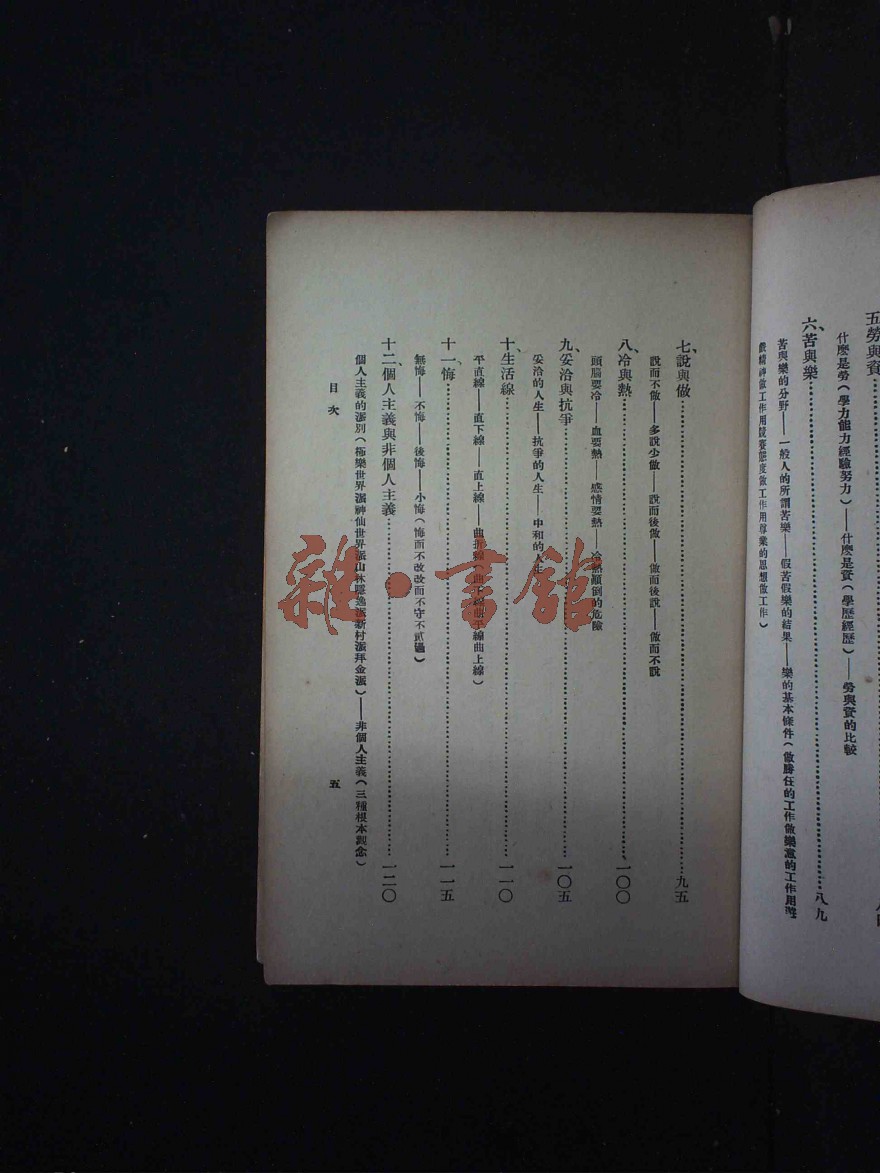 五、勞與資
什麼是勞(學力能力經驗努力)——什麼是資(學歷經歷)——勞與資的比較
六、苦與樂……八九
苦與樂的分野——一般人的所謂苦樂——假苦假樂的結果——樂的基本條件(做勝任的工作做樂意的工作用
精神做工作用競賽態度做工作用尊業的思想做工作)
七、說與做……九五
說而不做——多說少做——說而後做——做而後說——做而不說
八、冷與熱……一〇〇
頭腦要冷——血要熱——感情要熱——冷熱顛倒的危險
九、妥洽與抗爭……一〇五
妥洽的人生——抗爭的人生——中和的人生
十、生活線……一一〇
平直線——直下線——直上線——曲折線(曲下線曲平線曲上線)
十一、悔……一一五
無悔——不悔——後悔——小悔(悔而不改改而不守不貳過)
十二、個人主義與非個人主義……一二〇
個人主義的派別(極樂世界派神仙世界派山林隱逸派新村派拜金派)——非個人主義(三種根本觀念)
目次
五
雜·書館